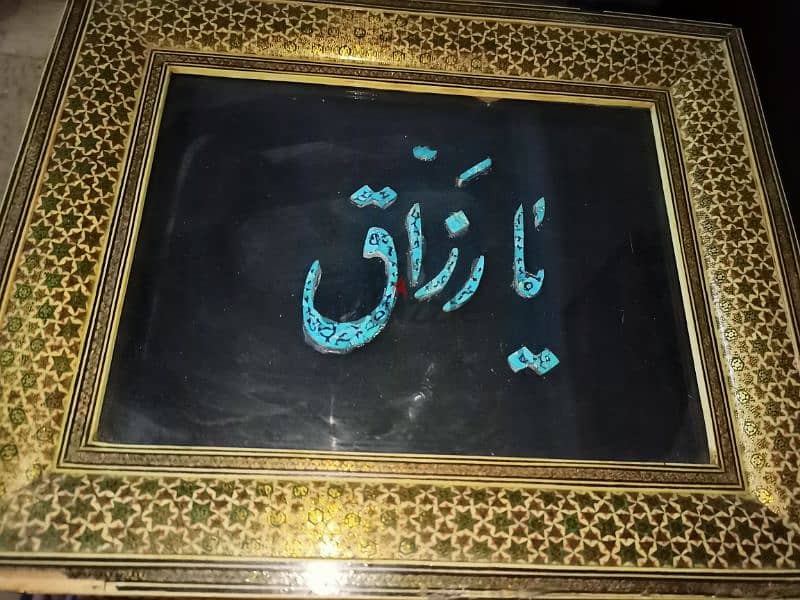 يا رَزّاق